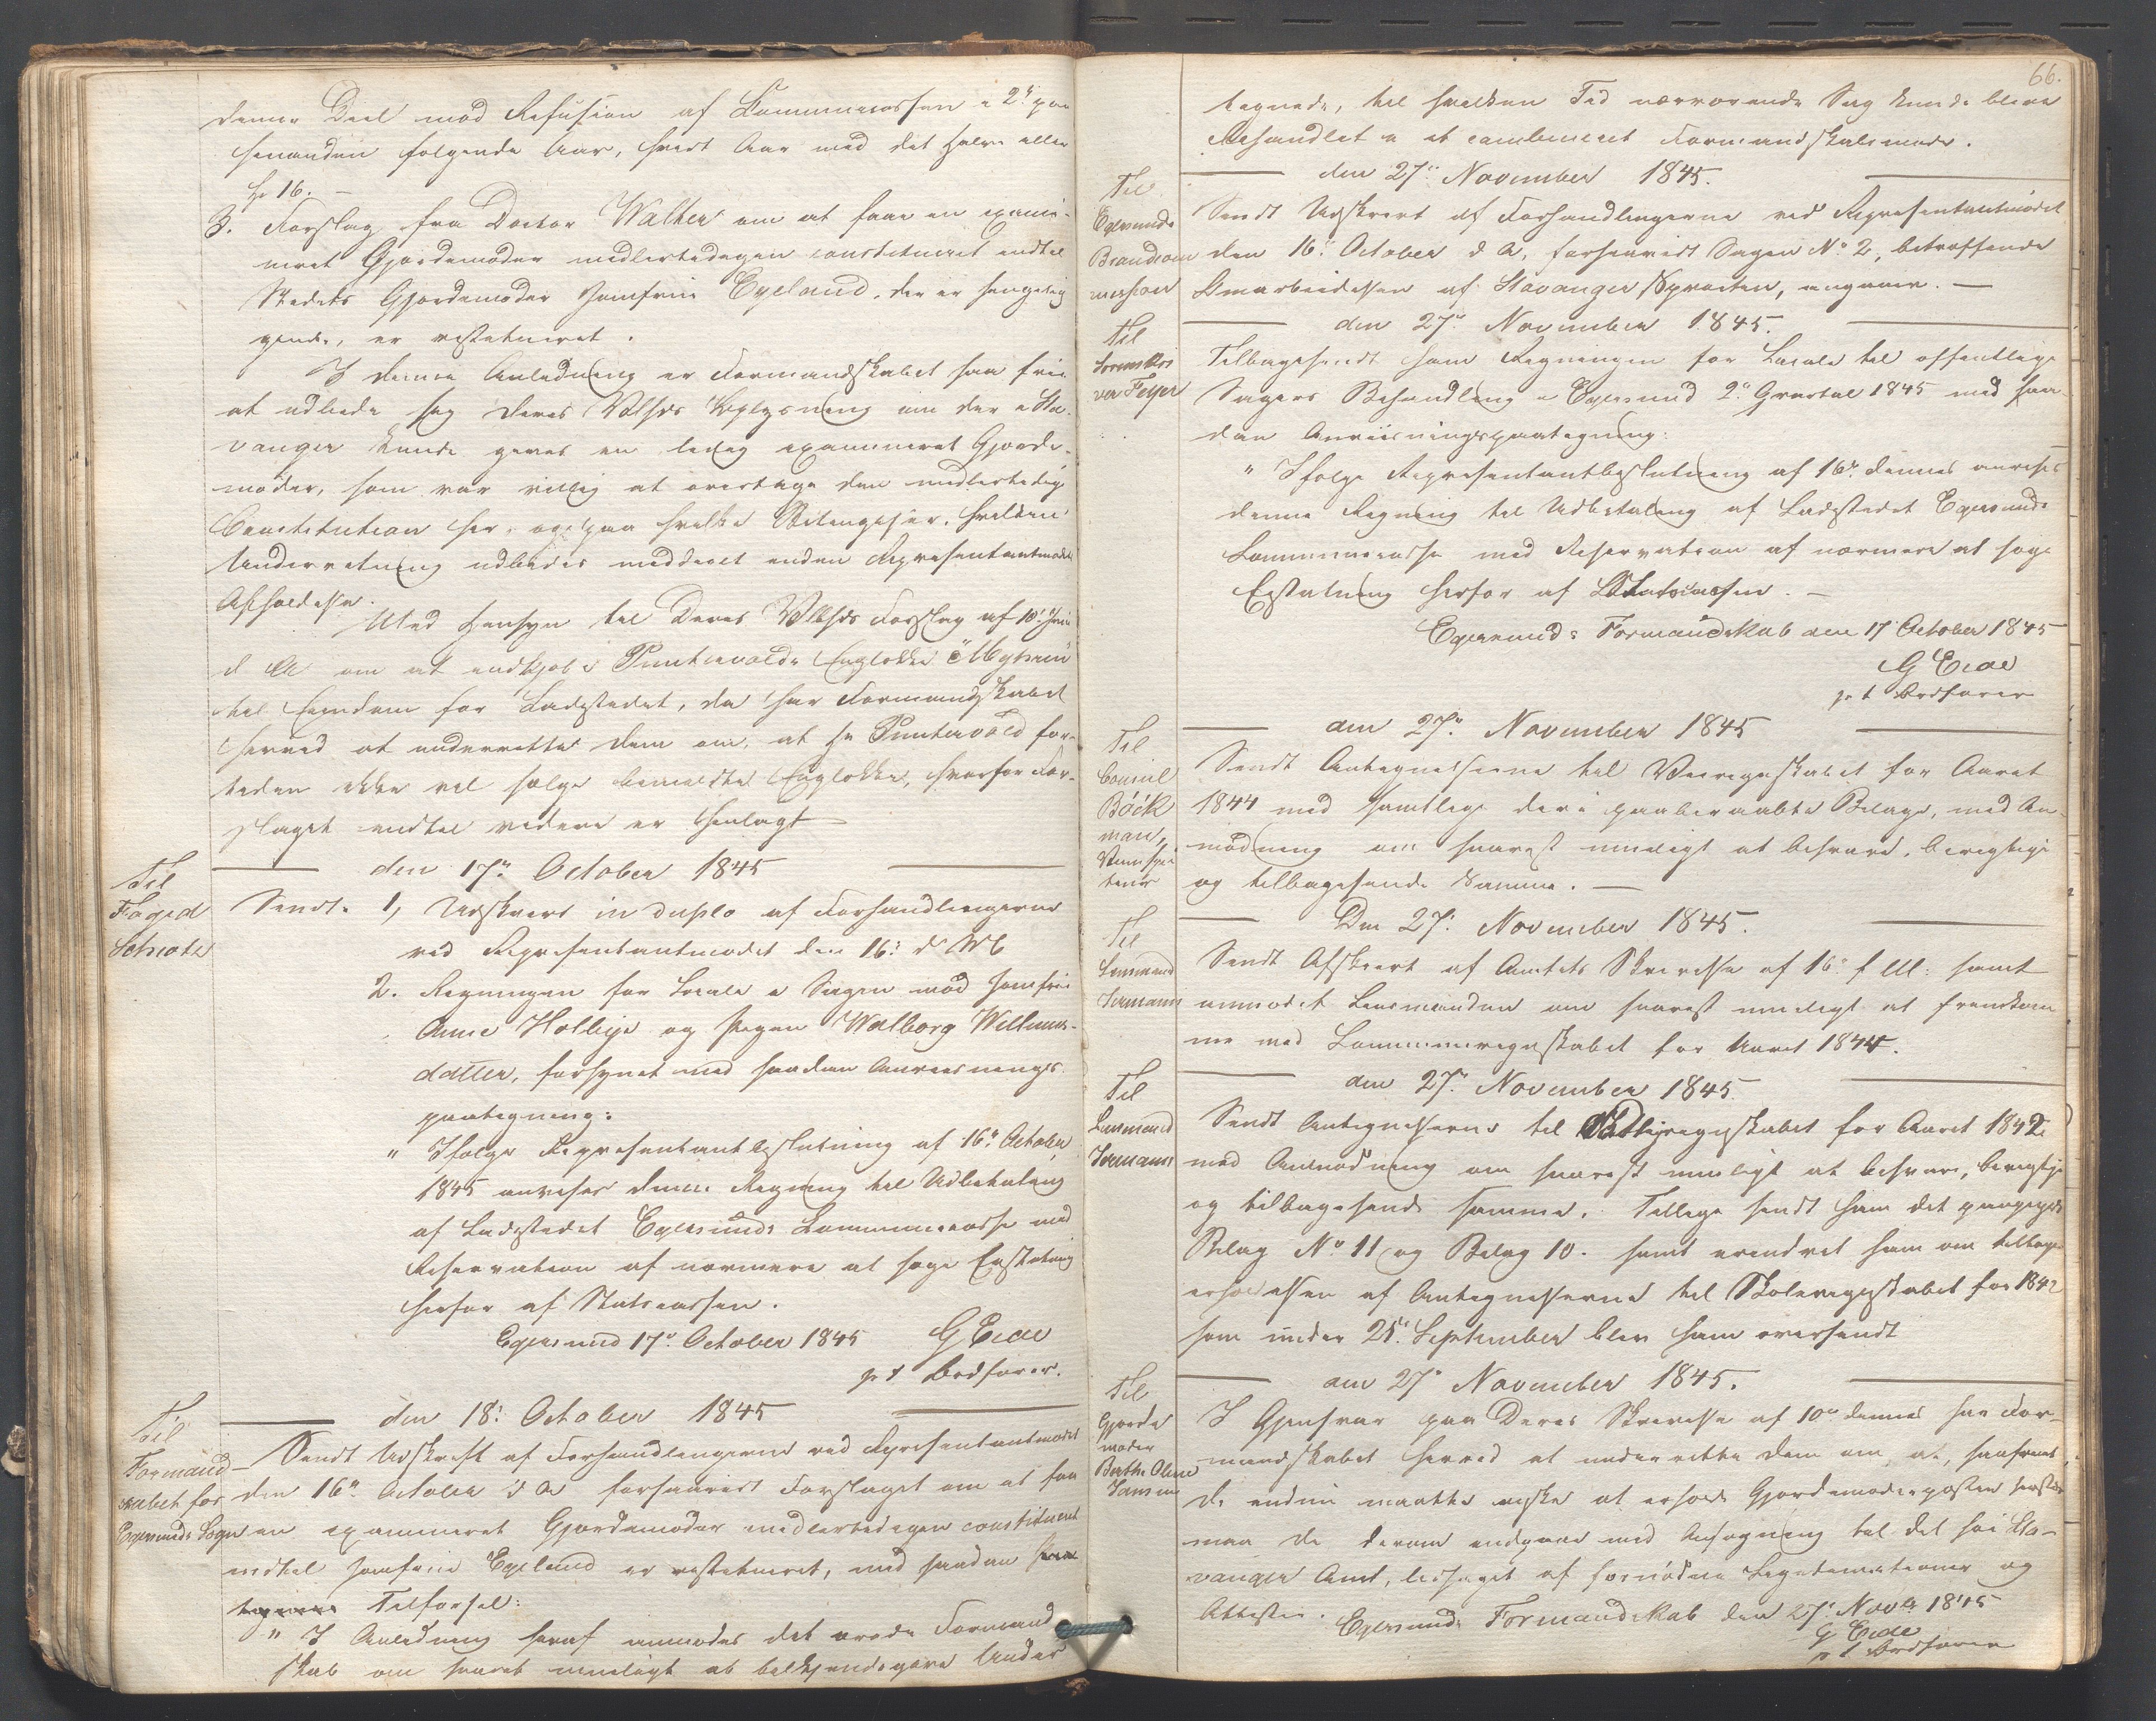 denne Deel mod Refusion af Communecassen i 2de paa
hinanden følgende Aar, hvert Aar med det halve eller
Sp 16. —
3. Forslag fra Doctor Walther om at faae en exami-
neret Gjordemoder midlertidigen constitueret indtil
Stedets Gjordemoder Jomfrue Egeland, der er sengelig
gende, er restitueret.
I denne Anledning er Formandskabet saa frie
at udbede sig Deres Oplysning om der i Sta-
vanger kunde gives en ledig examineret Gjorde-
moder, som var villig at overtage den midlertidige
Constitution her, og paa hvilke Betingelser, hvilken
Underretning udbedes meddeelt inden Repræsentantmødets
Afholdelse.
Med Hensyn til Deres Forslag af 10de Juni
d A om at indkjøbe Puntervolds Engløkke
til Eiendom for Ladestedet, da har Formandskabet
herved at underrette Dem om, at Hr Puntervold for-
tiden ikke vil sælge bemeldte Engløkke, hvorfor For-
slaget indtil videre er henlagt
den 17de October 1845
Til
Foged
Schiøtz
Sendt 1, Udskrivt in duplo af Forhandlingerne
ved Repræsentantmødet den 16de d M
2. Regningen for Locale i Sagen mod Jomfrue
Anne Hollige og Pigen Walborg Willums-
datter, forsynet med saadan Anviisnings-
paategning:
" Ifølge Repræsentantbeslutning af 16de October
1845 anvises denne Regning til Udbetaling
af Ladestedet Egersunds Communecasse med
Reservation af nærmere at søge Erstatning
herfor af Statscassen.
Egersund 17de October 1845 G Eide
p t Ordfører.
den 18de October 1845
Til
Formand-
skabet for
Egersunds Sogn
Sendt Udskrift af Forhandlingerne ved Repræsentantmødet
den 16de October d A forsaavidt Forslaget om at faa
en examineret Gjordemoder midlertidigen constitueret
indtil Jomfrue Egeland er restitueret, med saadan
Tilførsel:
" I Anledning heraf anmodes det ærede Formand-
skab om snarest mueligt at bekjendtgjøre Under
66.
tegnede, til hvilken Tid nærværende Sag kunde blive
Behandlet i et combineret Formandskabsmøde.
den 27de November 1845.
Til
Egersunds
Brandcom
mission
Sendt Udskrivt af Forhandlingerne ved Repræsentantmødet
den 16de October d A, forsaavidt Sagen No 2, betræffende
Omarbeidelsen af Stavanger Sprøiten, angaaer. —
den 27de November 1845.
Til
Sorenskri
ver Feyer
Tilbagesendt ham Regningen for Locale til offentlige
Sagers Behandling i Egersund 2det Qvartal 1845 med saa-
dan Anviisningspaategning:
" Ifølge Repræsentantbeslutning af 16de dennes anvises
denne Regning til Udbetaling af Ladestedet Egersunds
Communecasse med Reservation af nærmere at søge
Erstatning herfor af Statscassen. —
Egersunds Formandskab den 17 October 1845
G Eide
p t Ordfører
den 27de November 1845
Til
Consul
Böck
man,
Sendt Antegnelserne til Veiregnskabet for Aaret
1844 med samtlige deri paaberaabte Bilage, med An-
modning om snarest mueligt at besvare, berigtige
og tilbagesende samme. —
Den 27de November 1845.
Til
Lensmand
Iermann
Sendt Afskrivt af Amtets Skrivelse af 16de f M. samt
anmodet Lensmanden om snarest mueligt at fremkom
me med Communeregnskabet for Aaret 1844.
den 27de November 1845.
Til
Lensmand
Iermann
Sendt Antegnelserne til Fattigregnskabet for Aaret 1842
med Anmodning om snarest mueligt at besvare, berigtige
og tilbagesende samme. Tillige sendt ham det
Bilag No 11 og Bilag 10. samt erindret ham om tilbage
erholdelsen af Antegnelserne til Skoleregnskabet for 1842
som under 25de September blev ham oversendt
den 27de November 1845.
Til
Gjorde
moder
Berthe Oline
Jansen
I Gjensvar paa Deres Skrivelse af 10de dennes har For-
mandskabet herved at underrette Dem om, at, saafremt
De endnu maatte ønske at erholde Gjordemoderposten hersteds
maa De derom indgaae med Ansøgning til det høie Sta-
vanger Amt, ledsaget af fornødne Legitimationer og
Attester. Egersunds Formandskab den 27de Novbr 1845
G Eide
p t Ordfører